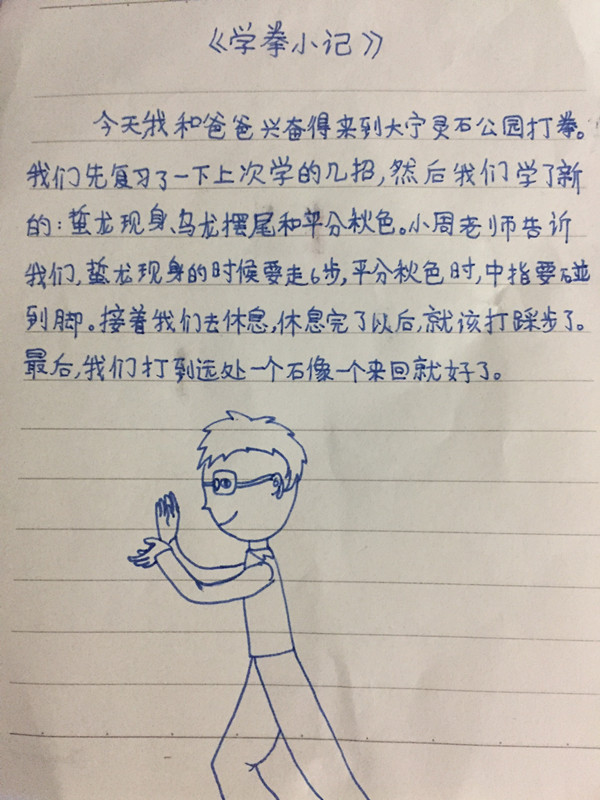 《学拳小记》
今天我和爸爸兴奋得来到大宁灵石公园打拳。
我们先复习了一下上次学的几招,然后我们学了新
的:蜇龙现身、乌龙摆尾和平分秋色。小周老师告诉
我们,蜇龙现身的时候要走6步,平分秋色时,中指要碰
到脚。接着我们去休息,休息完了以后,就该打踩步了。
最后,我们打到远处一个石像一个来回就好了。